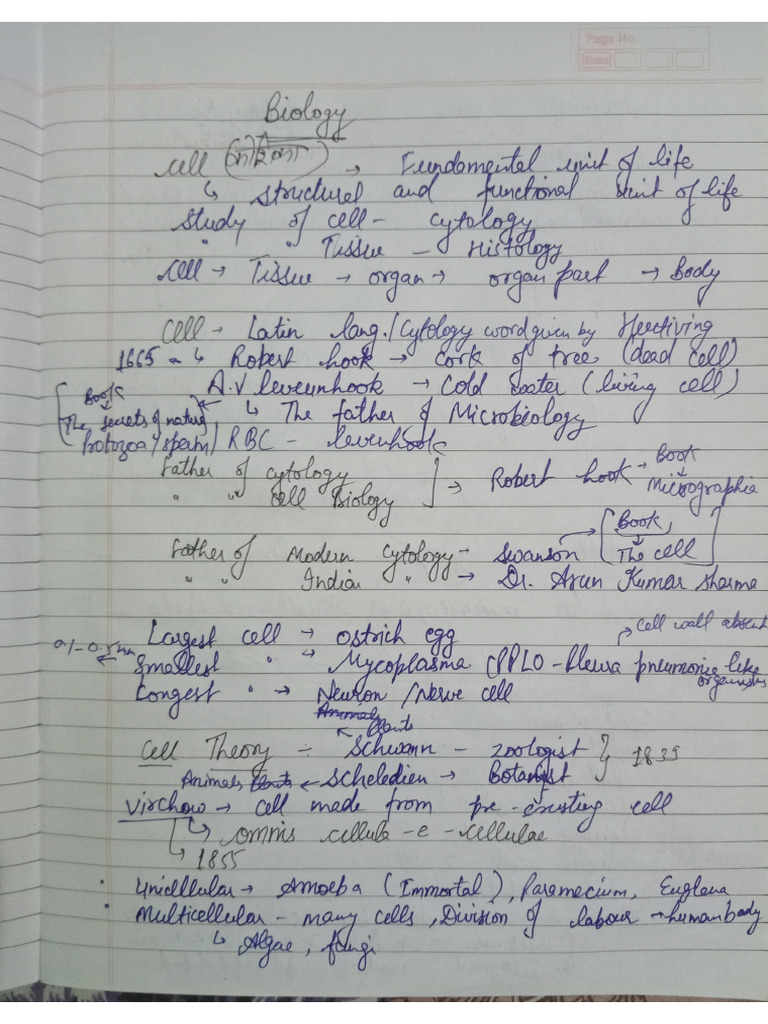 Page No.
Date
Biology
Cell (কোশিকা) → Fundamental unit of life
↳ structural and functional unit of life
Study of cell - cytology
" " Tissue - Histology
Cell → Tissue → organ → organ part → Body
Cell → Latin lang./Cytology word given by
1665 Robert hook → Cork of tree (dead cell)
A.V leveunhook → Cold water (living cell)
Book
The secrets of nature ↳ The father of Microbiology
Protozoa/sperm/RBC - levenhook
Father of cytology
" " cell Biology → Robert hook → Book
Micrographia
Father of Modern Cytology → Swanson [Book
The cell]
" " Indian " → Dr. Arun Kumar Sharma
Largest cell → ostrich egg
cell wall absent
Smallest " → Mycoplasma (PPLO - Plewra pneumonie like
organisms
Longest " → Neuron/Nerve cell
Animals
Plants
Cell Theory ÷ Schwann - zoologist } 1839
Animals Plants ← Scheledien → Botanist
Virchow → cell made from pre-existing cell
↳ omnis cellula-e-cellulae
↳ 1855
• Unicellular → Amoeba (Immortal), Paramecium, Euglena
• Multicellular - many cells, Division of labour → human body
↳ Algae, fungi